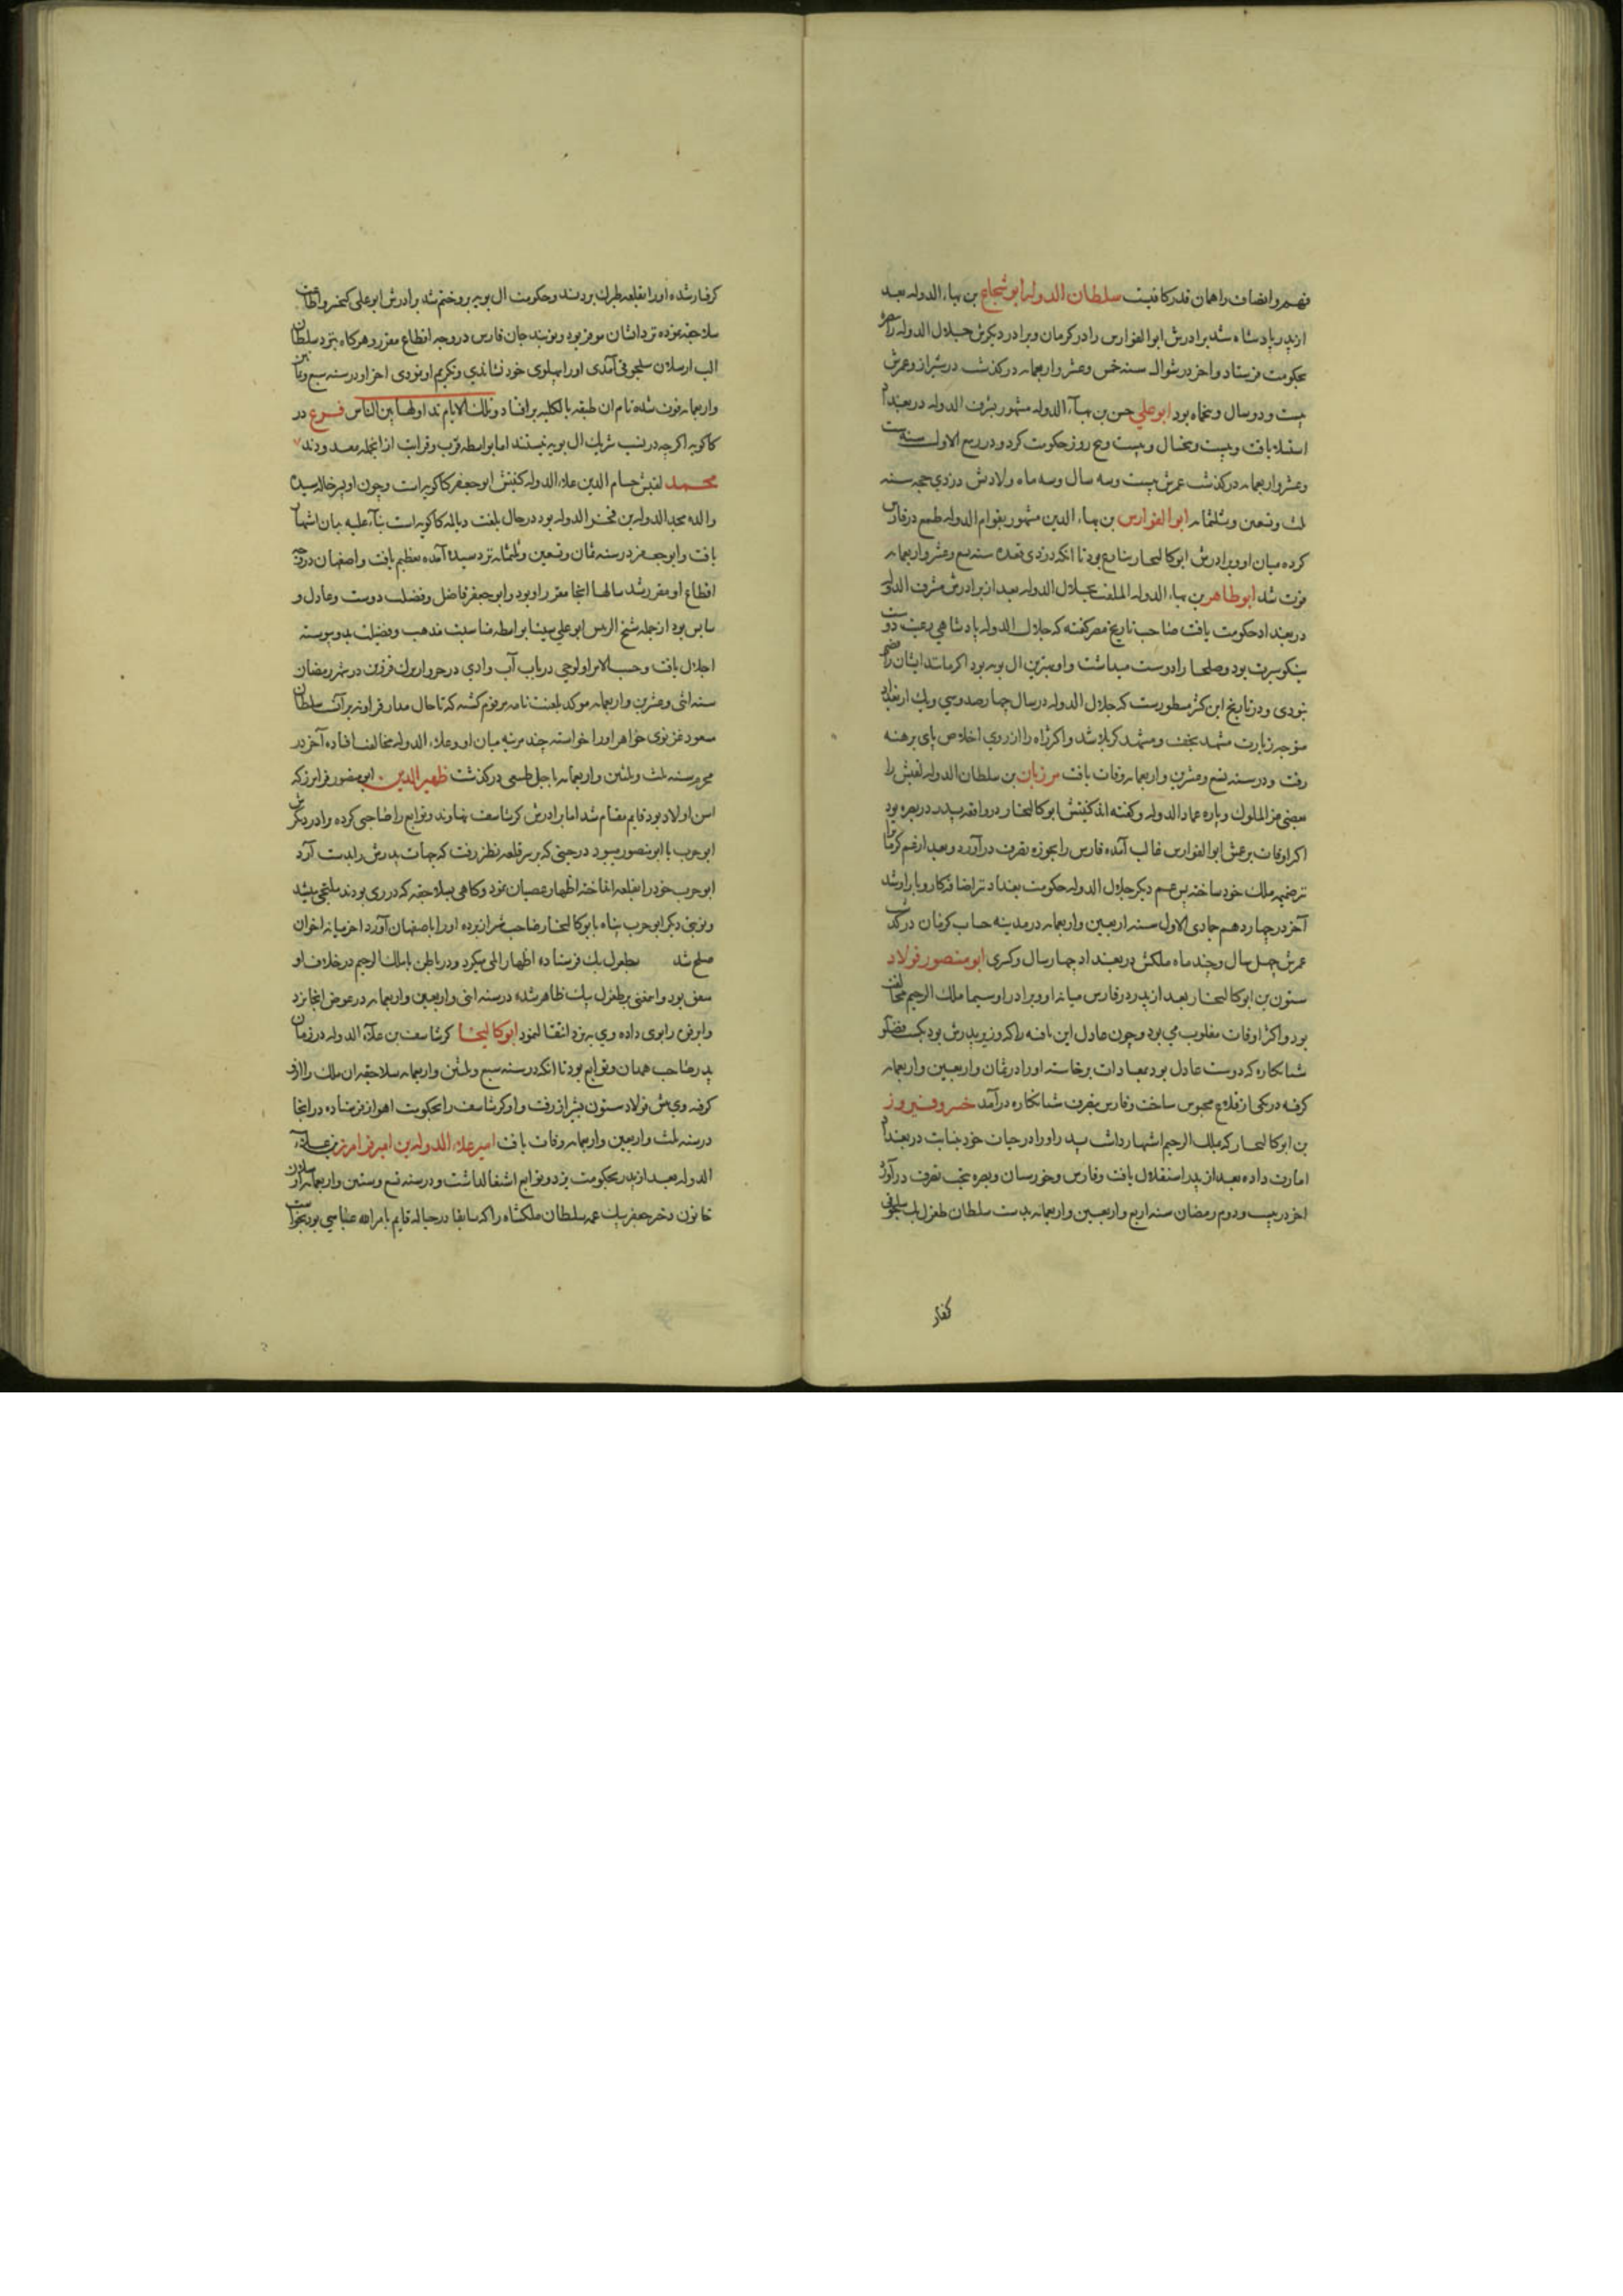 فهم و انصاف را همان قدر کافیت سلطان الدوله ابو شجاع بن بهاء الدوله بعد
از پدر پادشاه شد برادرش ابوالفوارس را در کرمان و برادر دیکرش جلال الدوله را
بحکومت فرستاد و آخر در شوال سنه خمس و عشر و اربعمایه درکذشت در شیراز و عمرش
بیست و دو سال و پنجماه بود ابو علی حسن بن بهآء الدوله مشهور بشرف الدوله در بغداد
استیلا یافت و بیست و پنجسال و بیست و پنج روز حکومت کرد و در ربیع الاول سنه ست
وعشر و اربعمایه درکذشت عمرش بیست و سه سال و سه ماه ولادتش در ذی حجه سنه
ثلث و تسعین و ثلثمایه ابوالفوارس بن بهاء الدین مشهور بقوام الدوله طمع در فارس
کرده میان او و برادرش ابوکالیجار تنازع بود تا آنکه در ذی قعده سنه تسع و عشر و اربعمایه
فوت شد ابوطاهر بن بهاء الدوله الملقب بجلال الدوله بعد از برادرش مشرف الدوله
در بغداد حکومت یافت صاحب تاریخ مصر کفته که جلال الدوله پادشاهی رعیت دوست
نیکو سیرت بود و صلحا را دوست میداشت و او بهترین ال بویه بود اکر مانند ایشان رافضی
نبودی و در تاریخ ابن کثیر مسطورست که جلال الدوله در سال چهارصد و سی و یک از بغداد
متوجه زیارت مشهد نجف و مشهد کربلا شد و اکثر راه را از روی اخلاص پای برهنه
رفت و در سنه تسع و عشرین و اربعمایه وفات یافت مرزبان بن سلطان الدوله لقبش را
بعضی عز الملوک و پاره عماد الدوله و کفته اند کنیتش ابوکالیجار در واقعه پدر در بصره بود
اکثر اوقات بر عمش ابوالفوارس غالب آمده فارس را بحوزه تصرف درآورد و بعد از عم کرمانرا
ضمیمه ملک خود ساخته پس عم دیکر جلال الدوله حکومت بغداد نیز اضافه کار و بار او شد
آخر در چهاردهم جمادی الاول سنه اربعین و اربعمایه در مدینه کرمان درکذشت
عمرش چهل سال و چند ماه ملکش در بغداد چهار سال و کسری ابو منصور فولاد
ستون بن ابوکالیجار بعد از پدر در فارس میانه او و برادر او سیما ملک الرحیم مخالفت
بود و اکثر اوقات مغلوب می بود و چون عادل ابن مافنه را که وزیر پدرش بود بکشت فضلو
شبانکاره که دوست عادل بود بمعادات برخاسته او را در ثمان و اربعین و اربعمایه
کرفته در یکی از قلاع محبوس ساخت و فارس بتصرف شبانکاره درآمد خسرو فیروز
بن ابوکالیجار که بملک الرحیم اشتهار داشت پدر او را در حیات خود بنیابت در بغداد
امارت داده بعد از پدر استقلال یافت و فارس و خورستان و بصره بتحت تصرف درآورد
آخر در بیست و دوم رمضان سنه اربع و اربعین و اربعمایه بدست سلطان طغرل بک سلجوقی
کرفتار
کرفتار شده او را بقلعه طبرک بردند و حکومت ال بویه برو ختم شد برادرش ابو علی کیخسرو اطاعت
سلاجقه نموده نزد ایشان موقر بود و نوبندجان فارس در وجه اقطاع مقرر و هرکاه بنزد سلطان
الب ارسلان سلجوقی آمدی او را پهلوی خود نشاندی و تکریم او نمودی آخر او در سنه سبع و ثمانین
و اربعمایه فوت شده نام آن طبقه بالکلیه برافتاد و تلک الایام نداولها بین الناس فرع در
کاکویه اکرچه در نسب شریک ال بویه نیستند اما بواسطه قرب و قرابت از انجمله معدودند
محمد لقبش حسام الدین علاء الدوله کنیتش ابو جعفر کاکویه است و چون او پسر خال سیده
والده مجد الدوله بن فخر الدوله بود و خال بلغت دیالمه کاکویه است بنآء علیه بان اشتهار
یافت و ابو جعفر در سنه ثمان و تسعین و ثلثمایه نزد سیده آمده تعظیم یافت و اصفهان در وجه
اقطاع او مقرر شد سالها انجا مقرر او بود و ابو جعفر فاضل و فضیلت دوست و عادل و
سایس بود از جمله شیخ الرئیس ابو علی سینا بواسطه مناسبت مذهب و فضیلت بدو پیوسته
اجلال یافت و حسب الامر او لوحی در باب آب وادی در جوار برک فرزین در شهر رمضان
سنه اثنی و عشرین و اربعمایه موکد بلعنت نامه مرقوم کشته که تا حال مدار قرا و نهر بر آنست سلطان
مسعود غزنوی خواهر او را خواسته چند مرتبه میان او و علاء الدوله مخالفت افتاده آخر در
محرم سنه ثلث و ثلثین و اربعمایه باجل طبیعی درکذشت ظهیر الدین ابو منصور فرامرز که
اسن اولاد بود قایم مقام شد اما برادرش کرشاسف نهاوند و توابع را صاحبی کرده و برادر دیکرش
ابو حرب با ابو منصور میبود در حینی که بر سر قلعه نطنز رفت که جهات پدرش را بدست آرد
ابو حرب خود را بقلعه انداخته اظهار عصیان نمود و کاهی بسلاجقه که در ری بودند ملتجی میشد
و نوبتی دیکر ابو حرب پناه بابوکالیجار صاحب شیراز برده او را باصفهان آورد آخر میانه اخوان
صلح شد بطغرل بک فرستاده اظهار ایلی میکرد و در باطن با ملک الرحیم در خلاف او
متفق بود و این معنی بر طغرل بیک ظاهر شده در سنه اثنی و اربعین و اربعمایه در عوض انجا یزد
و ابرقوه را بوی داده وی به یزد انتقال نمود ابوکالیجار کرشاسف بن علاء الدوله در زمان
پدر صاحب همدان و توابع بود تا آنکه در سنه سبع و ثلثین و اربعمایه سلاجقه ان ملک را ازو
کرفته وی پیش فولاد ستون بشیراز رفت و او کرشاسف را بحکومت اهواز فرستاده در انجا
در سنه ثلث و اربعین و اربعمایه وفات یافت امیر علاء الدوله بن امیر فرامرز بن علاء
الدوله بعد از پدر بحکومت یزد و توابع اشتغال داشت و در سنه تسع و ستین و اربعمایه ارسلان
خاتون دختر جعفر بیک عمه سلطان ملکشاه را که سابقا در حباله قایم بامر الله عباسی بود بخواست